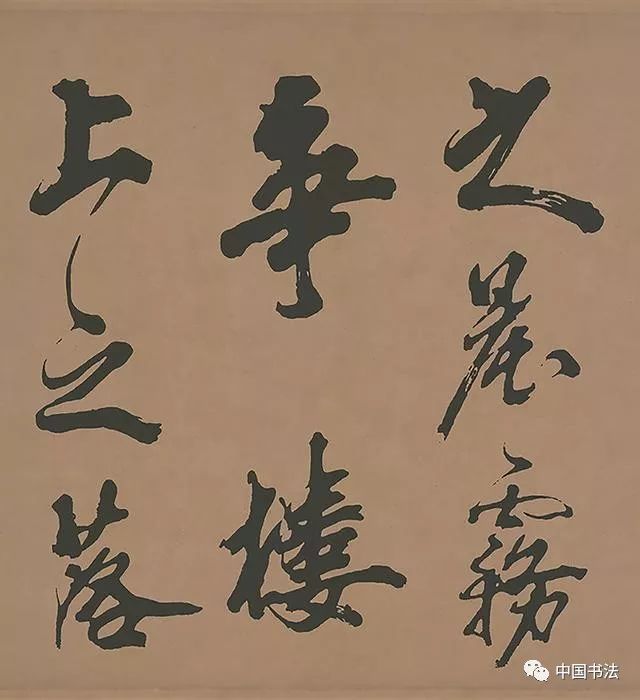 之晨霧
華樓
上之落
中国书法